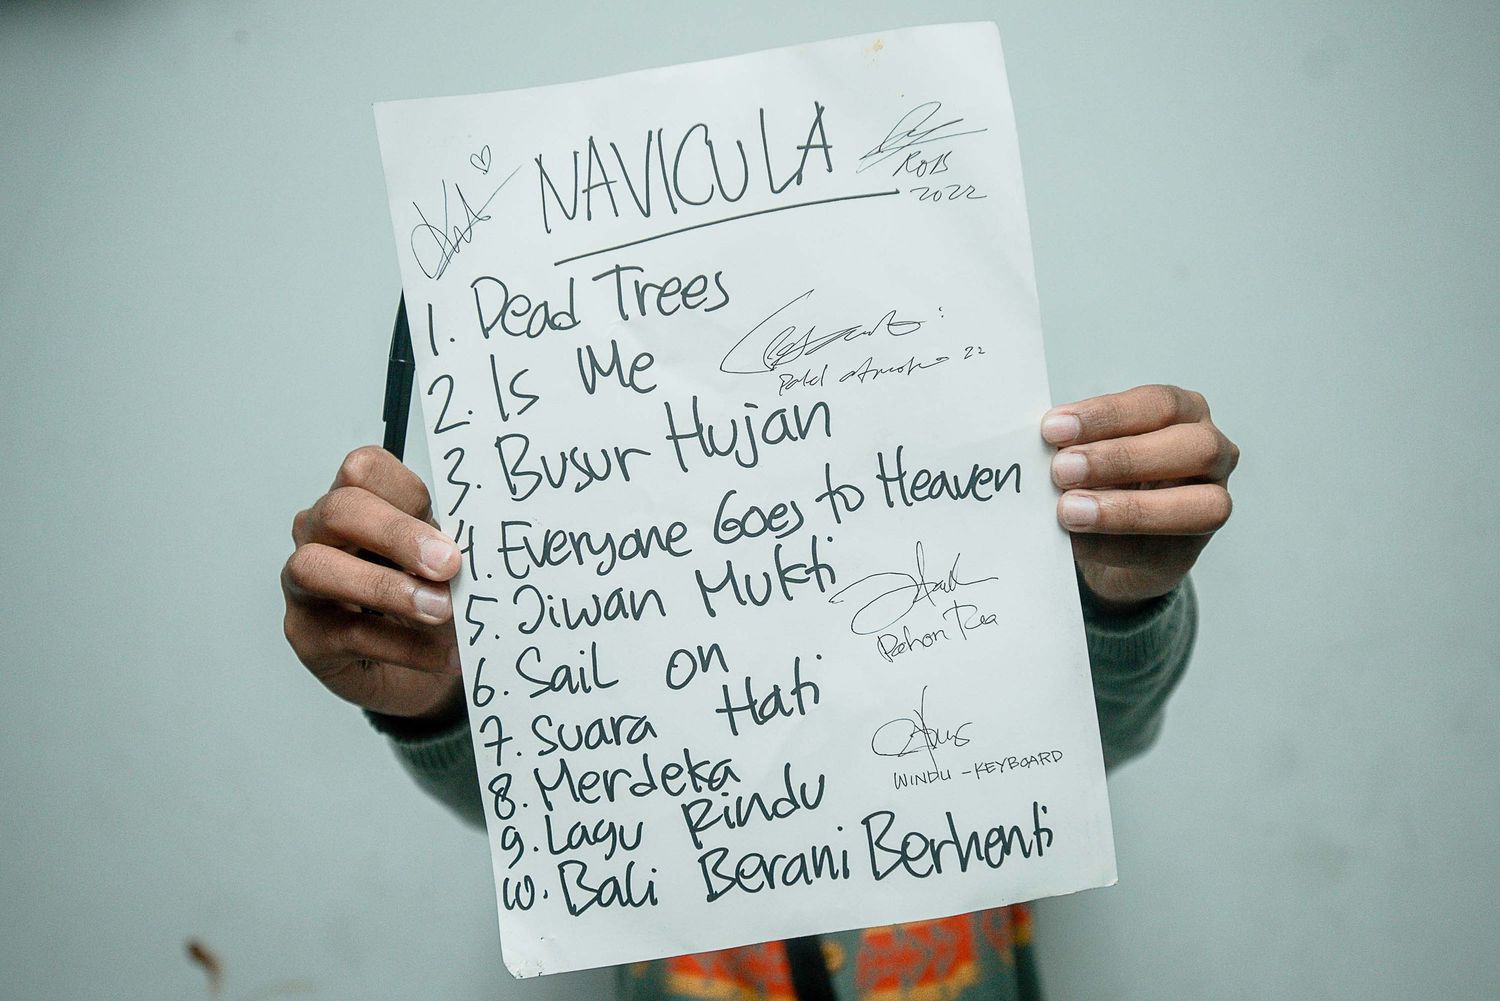 NAVICULA
ROB
2022
1. Dead Trees
2. Is Me
22
3. Busur Hujan
4. Everyone Goes to Heaven
5. Jiwan Mukti
6. Sail on
7. Suara Hati
8. Merdeka
WINDU - KEYBOARD
9. Lagu Rindu
10. Bali Berani Berhenti